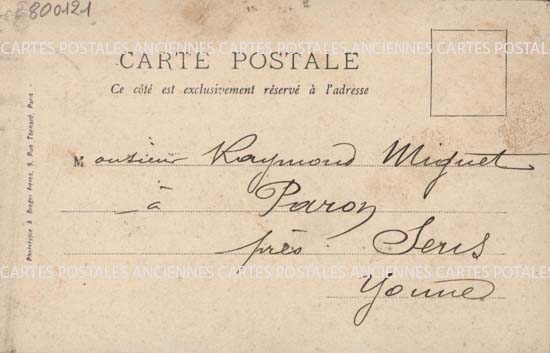 800121
CARTES POSTALES ANCIENNES CARTES POSTALES ANCIENNES CARTES POSTALES
CARTE POSTALE
Ce côté est exclusivement réservé à l'adresse
Monsieur Raymond Miguet
à Paron
près Sens
Yonne
CARTES POSTALES ANCIENNES CARTES POSTALES ANCIENNES CARTES POSTALES
Phototypie A. Breger frères, 9, Rue Thénard, Paris.